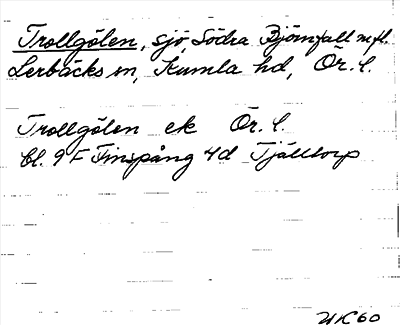 Trollgölen, sjö, Södra Björnfall m.fl.
Lerbäcks sn, Kumla hd, Ör. l.
Trollgölen ek Ör. l.
bl. 9 F Finspång 4d Tjälltorp